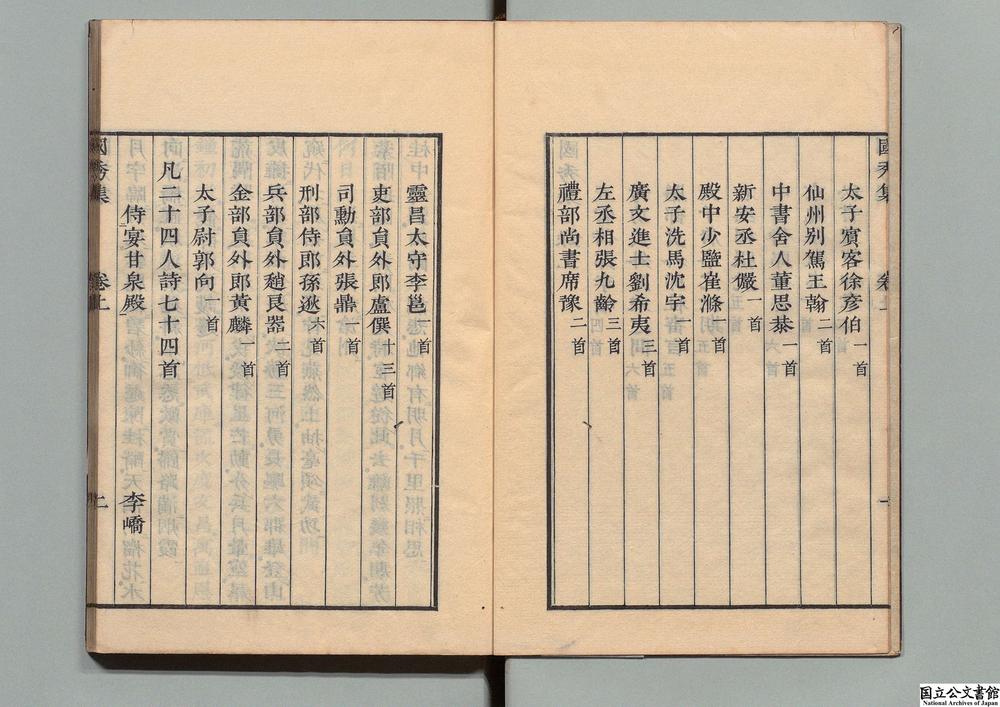 國秀集 卷上 一
太子賓客徐彥伯一首
仙州別駕王翰二首
中書舍人董思恭一首
新安丞杜儼一首
殿中少監崔滌一首
太子洗馬沈宇一首
廣文進士劉希夷三首
左丞相張九齡三首
禮部尚書席豫二首
靈昌太守李邕一首
吏部員外郎盧僎十三首
司勳員外張鼎一首
刑部侍郎孫逖六首
兵部員外趙良器二首
金部員外郎黃麟一首
太子尉郭向一首
凡二十四人詩七十四首
侍宴甘泉殿 李嶠
國秀集 卷上 二
国立公文書館
National Archives of Japan